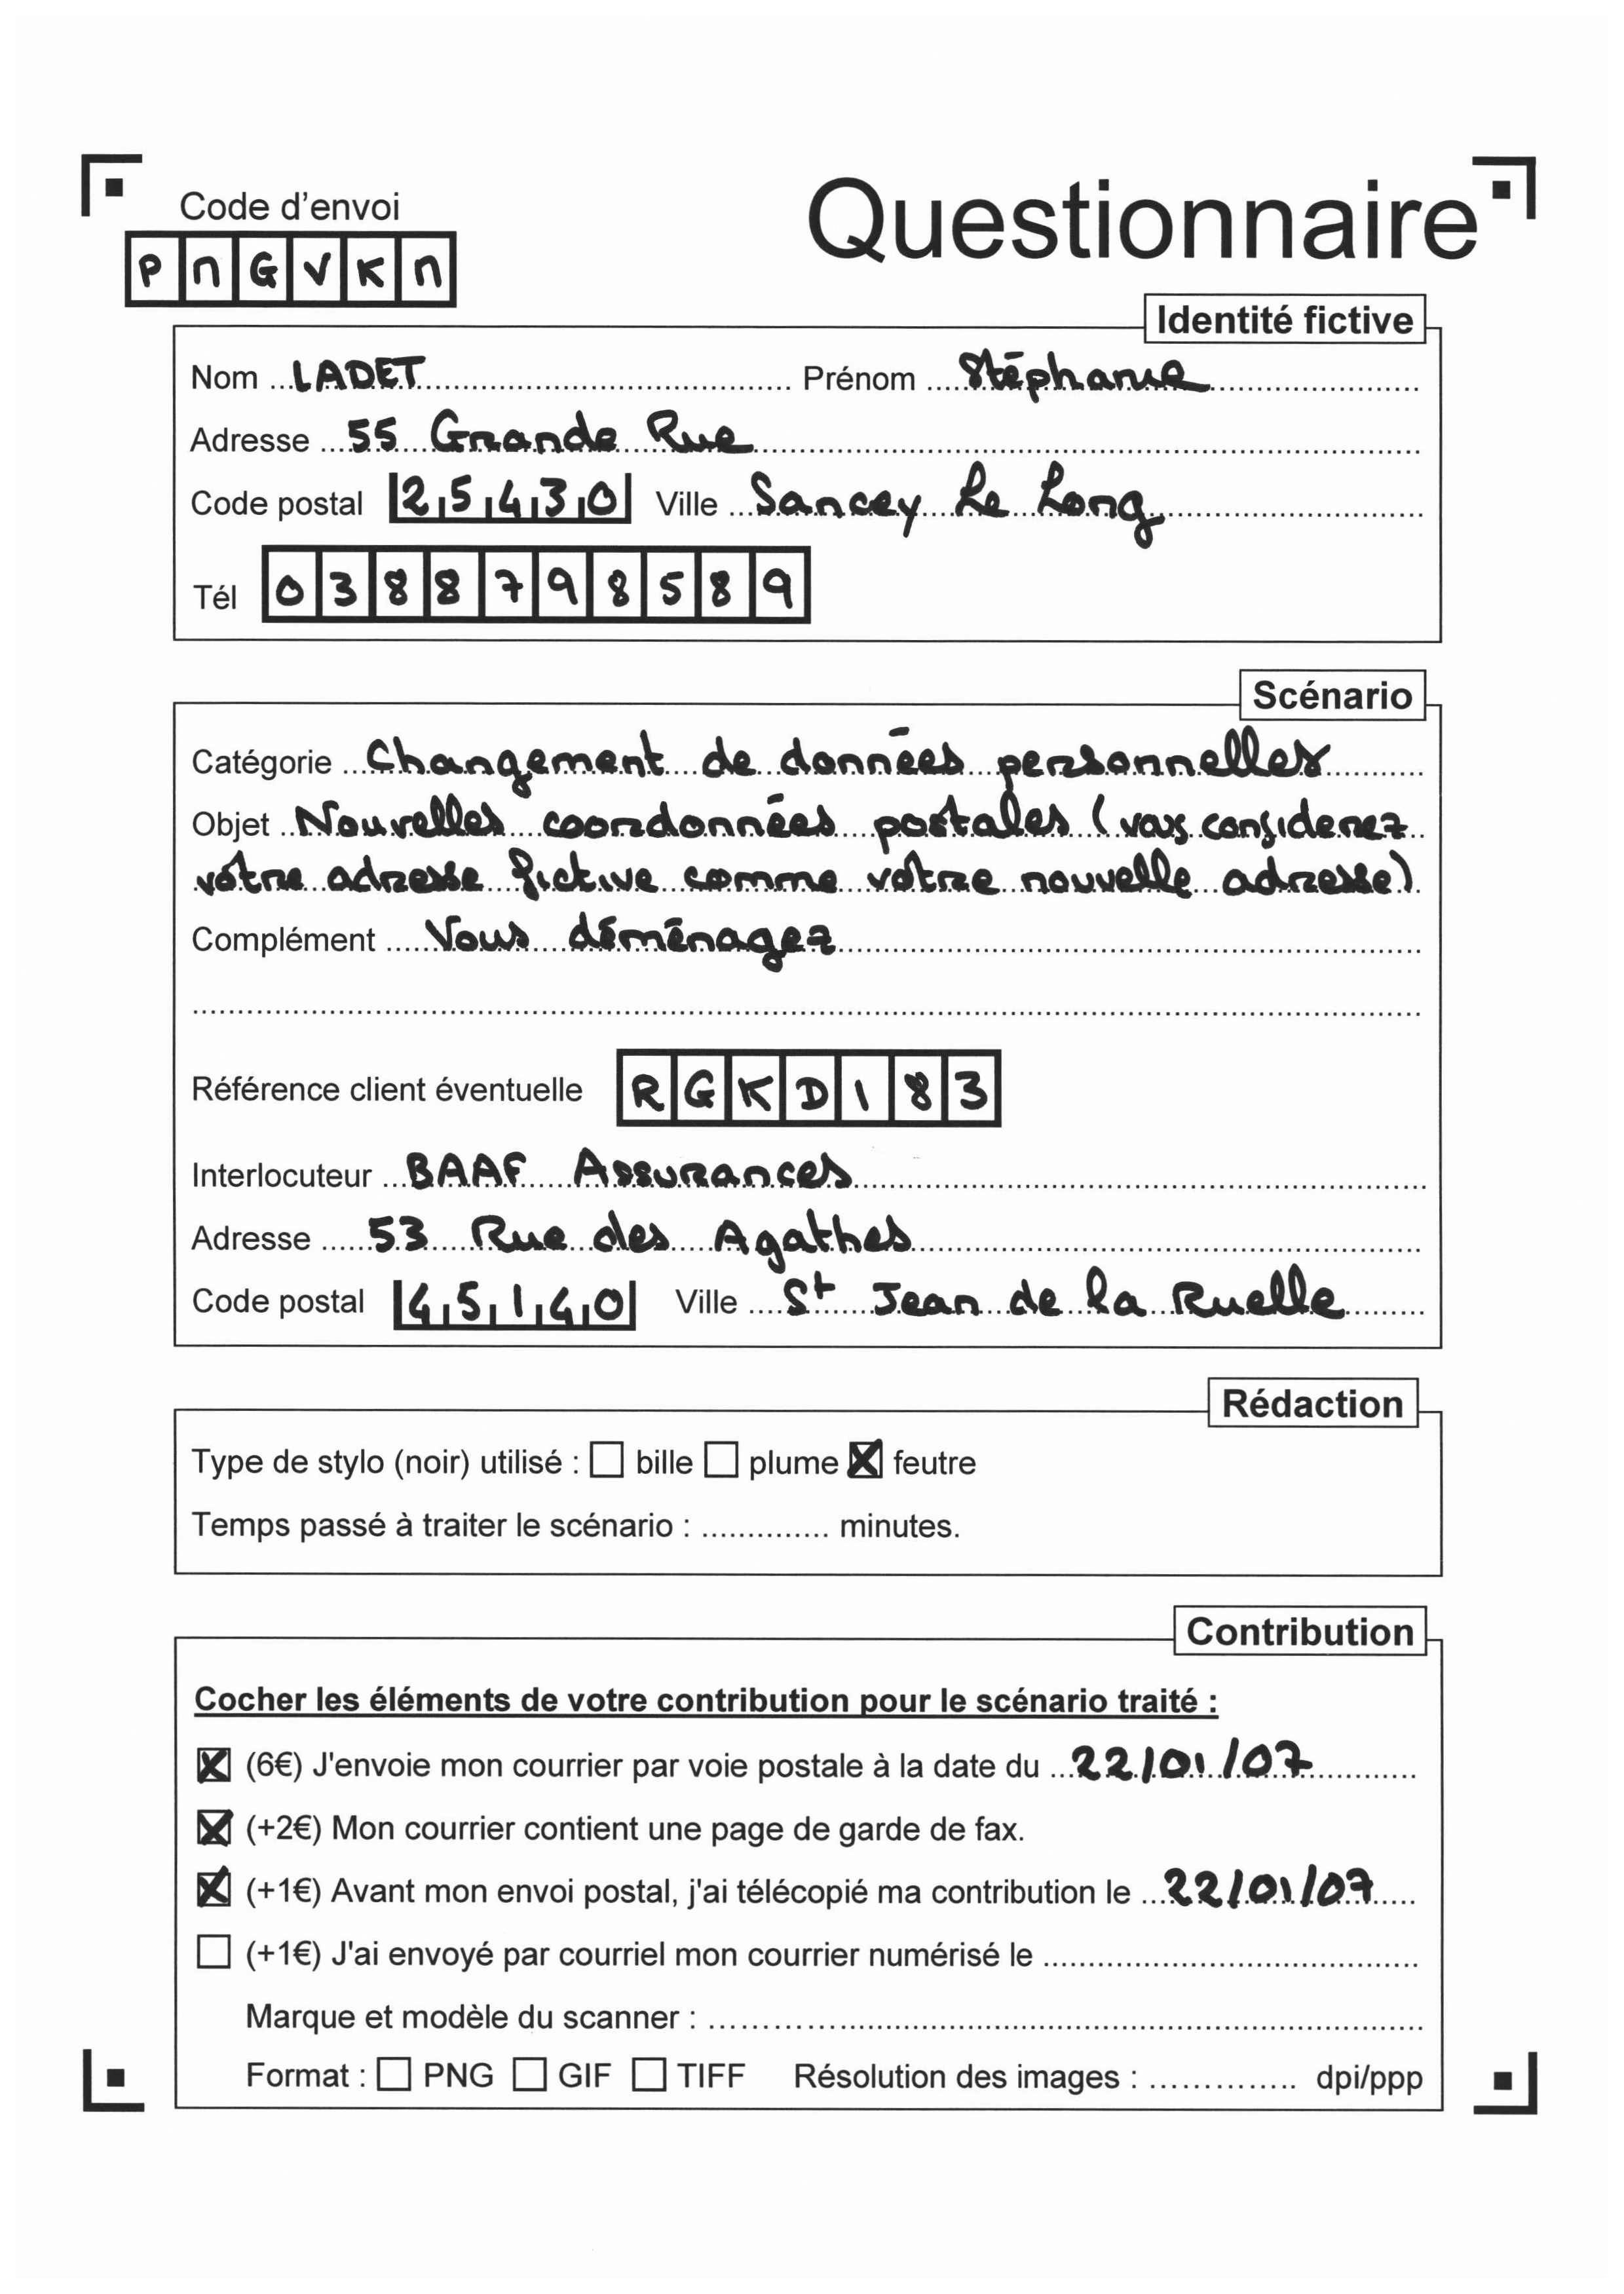 Code d'envoi
Questionnaire
PnGVKn
Identité fictive
Nom LADET Prénom Stéphanie
Adresse 55 Grande Rue
Code postal 25430 Ville Sancey Le Long
Tél 0388798589
Scénario
Catégorie Changement de données personnelles
Objet Nouvelles coordonnées postales (vous considerez
vôtre adresse fictive comme vôtre nouvelle adresse)
Complément Vous déménagez
Référence client éventuelle RGKD183
Interlocuteur BAAF Assurances
Adresse 53 Rue des Agathes
Code postal 45140 Ville St Jean de la Ruelle
Rédaction
Type de stylo (noir) utilisé : bille plume feutre
Temps passé à traiter le scénario : .............. minutes.
Contribution
Cocher les éléments de votre contribution pour le scénario traité :
(6€) J'envoie mon courrier par voie postale à la date du 22/01/07
(+2€) Mon courrier contient une page de garde de fax.
(+1€) Avant mon envoi postal, j'ai télécopié ma contribution le 22/01/07
(+1€) J'ai envoyé par courriel mon courrier numérisé le
Marque et modèle du scanner :
Format : PNG GIF TIFF Résolution des images : .............. dpi/ppp